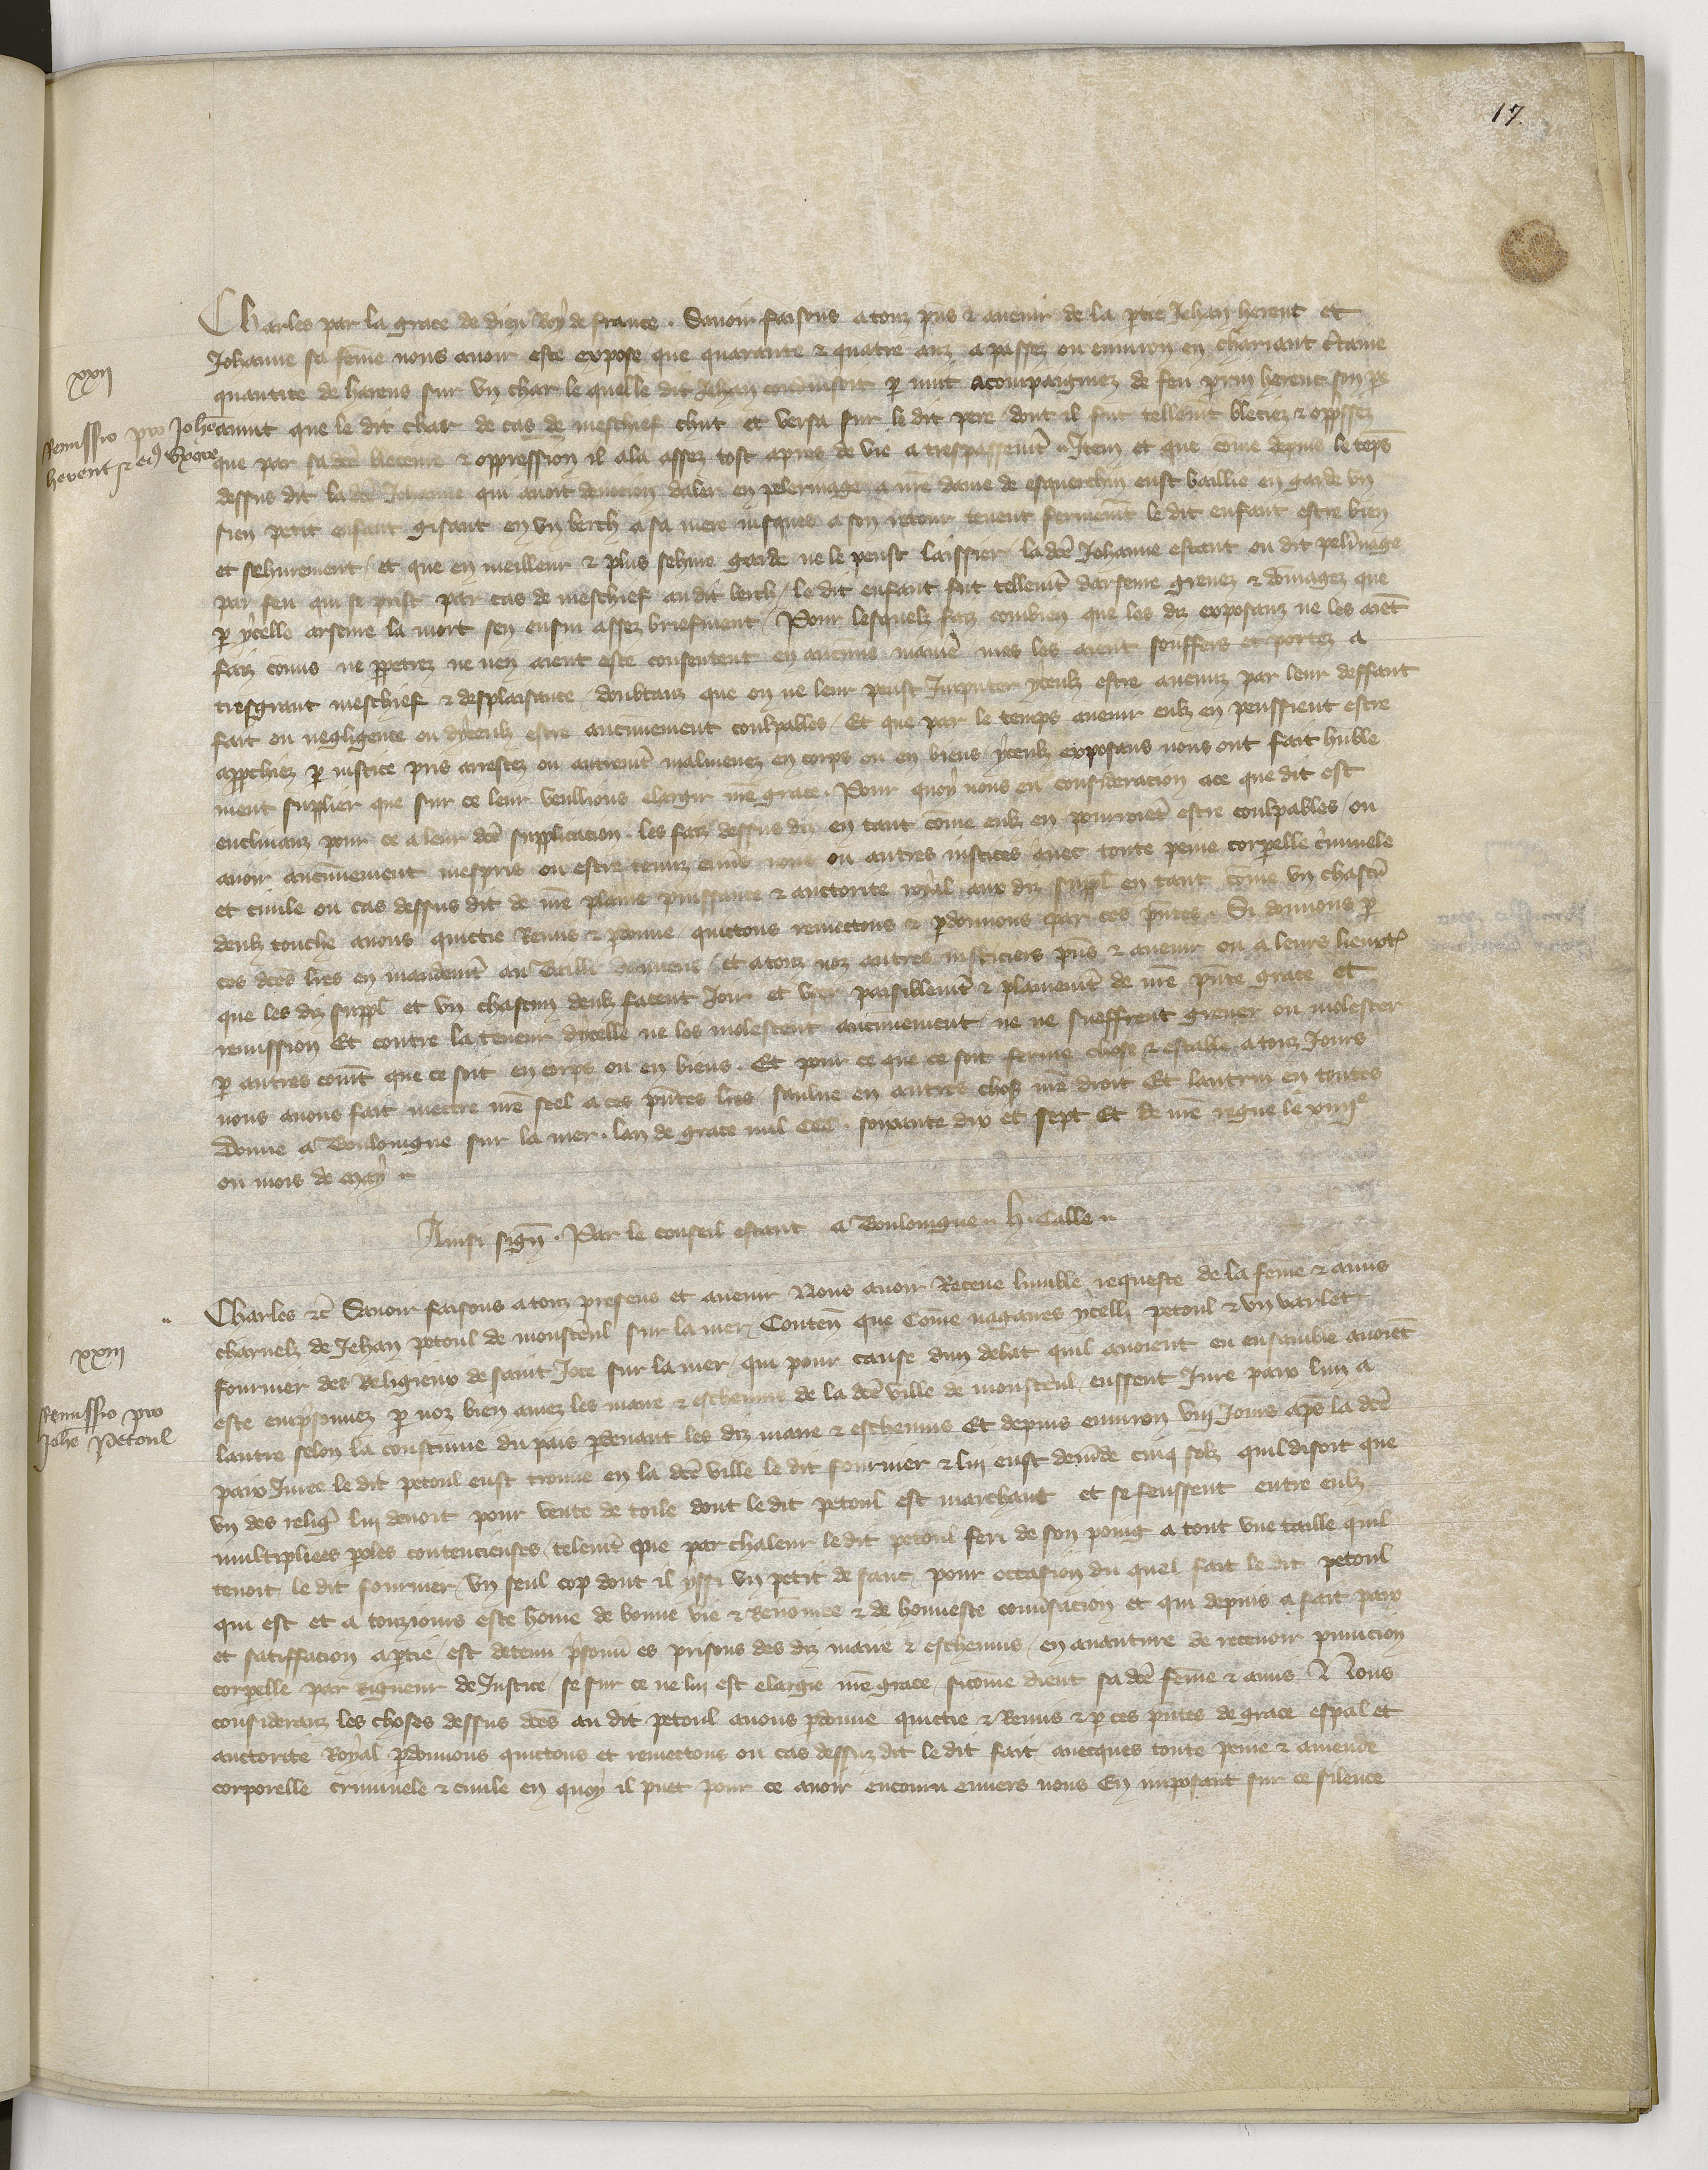 17.
Charles par la grace de dieu Roy de france. Sauoir faisons a touz pns & auenir de la ptie Jehan herent et
Johanne sa feme nous auoir este expose que quarante & quatre anz a passez ou enuiron en chariant ctaine
quantite de harens sur vn char le quelle dit Jehan conduisoit p nuit acompaignez de feu prin herent son pe
xxii
Remissio pro Johe
herent & eius uxore
auint que le dit char de cas de meschief chut et versa sur le dit pere dont il fut tellemt bleciez & oppssez
que par sa dce bleceure & oppression il ala assez tost apres de vie a trespassement Item et que come depuis le teps
dessus dit la dce Johanne qui auoit deuocion daler en pelerinage a nre dame de esquerchin eust baillie en garde vn
sien petit enfant gisant en vn berch a sa mere iusques a son retour tenent fermemt le dit enfant estre bien
et sehurement / et que en meilleur & plus sehure garde ne le peust laissier / la dce Johanne estant ou dit pelinage
par feu qui se prist par cas de meschief au dit berch / le dit enfant fut tellemt darseure greuez & domagez que
p ycelle arseure la mort sen ensui assez briefment / Pour lesquelz faiz combien que les diz exposanz ne les aiet
faiz comis ne ppetrez ne nen aient este consentent en aucune manie mes les aient souffers et portez a
tresgrant meschief & desplaisance / doubtanz que on ne leur peust Imputer yceulz estre auenuz par leur deffaut
fait ou negligence ou dyceulz estre aucunement coulpables / Et que par le temps auenir eulz en peussient estre
appchiez p iustice pris arrestez ou autremt malmenez en corps ou en biens yceulz exposans nous ont fait huble
ment supplier que sur ce leur veullions elargir nre grace. Pour quoy nous eu consideracion a ce que dit est
enclinanz pour ce a leur dce supplicacion. les faiz dessus diz en tant come eulz en pourroiet estre coulpables / ou
auoir aucunement mespris ou estre tenuz enuers nous ou autres iustices auec toute peine corpelle criminele
et ciuile ou cas dessus dit de nre plaine puissance & auctorite royal aux diz suppl en tant come vn chascu
deulz touche auons quictie Remis & pdonne quictons remettons & pdonnons par ces pntes. Si donnons p
ces dces lres en mandemt au Bailli damiens / et a touz noz autres iusticiers pns & auenir ou a leurs lieuxt
que les diz suppl et vn chascun deulz facent Joir et vser paisiblemt & plainemt de nre pnte grace et
remission Et contre la teneur dycelle ne les molestent aucunement ne ne sueffrent greuer ou molester
p autres comt que ce soit en corps ou en biens. Et pour ce que ce soit ferme chose & estable a touz Jours
nous auons fait mettre nre scel a ces pntes lres / sauue en autres choses nre droit Et lautrui en toutes
Donne a Bouloingne sur la mer. lan de grace mil CCC. soixante dix et sept Et de nre regne le xiiiie
ou mois de may
Ainsi sign. Par le conseil estant a Bouloingne. H. Calle
Charles &c Sauoir faisons a touz presens et auenir Nous auoir Receue humble requeste de la feme & amis
xxiii
Remissio pro
Johe Petoul
charnelz de Jehan petoul de monsteul sur la mer / Conten que Come nagaires ycelli petoul & vn varlet
fournier des Religieux de saint Joce sur la mer / qui pour cause dun debat quil auoient eu ensamble auoiet
este emprisonnez p noz bien amez les maire & escheuins de la dce ville de monsteul / eussent Jure paix lun a
lautre selon la coustume du pais pdeuant les diz maire & escheuins Et depuis enuiron viii Jours aps la dce
paix Juree le dit petoul eust trouue en la dce ville le dit fournier & lui eust demde cinq solz quil disoit que
vn des relig lui deuoit pour vente de toile dont le dit petoul est marchant et se feussent entre eulz
multipliees poles contencieuses / telemt que par chaleur le dit petoul feri de son poing a tout vne taille quil
tenoit le dit fournier / vn seul cop dont il yssi vn petit de sanc / pour occasion du quel fait le dit petoul
qui est et a touzjours este home de bonne vie & Renomee & de honneste conusacion et qui depuis a fait paix
et satiffacion a ptie / est detenu prisonn es prisons des diz maire & escheuins / en auanture de receuoir punicion
corpelle par rigueur de Justice / se sur ce ne lui est elargie nre grace / sicome dient sa dce feme & amis Nous
consideranz les choses dessus dces au dit petoul auons pdonne quictie & Remis & p ces pntes de grace espal et
auctorite Royal pdonnons quictons et remettons ou cas dessuz dit le dit fait auecques toute peine & amende
corporelle criminele & ciuile en quoy il puet pour ce auoir encouru enuers nous En imposant sur ce silence